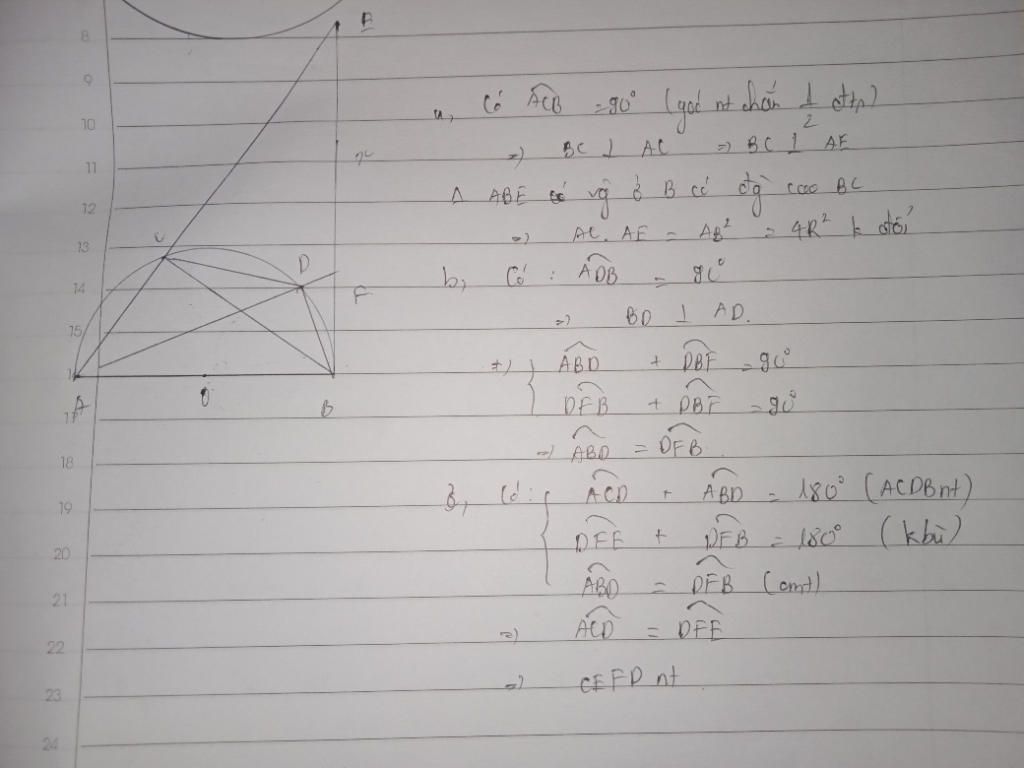 8
9
10
11
12
13
14
15
16
17
18
19
20
21
22
23
24
E
x
C
D
F
A
O
B
a, Có \widehat{ACB} = 90° (góc nt chắn \frac{1}{2} đttr)
=> BC ⊥ AC => BC ⊥ AE
Δ ABE vg ở B có đg cao BC
=> AC. AE = AB² = 4R² k đổi
b, Có : \widehat{ADB} = 90°
=> BD ⊥ AD.
=> { \widehat{ABD} + \widehat{DBF} = 90°
\widehat{DFB} + \widehat{DBF} = 90°
=> \widehat{ABD} = \widehat{DFB}.
Có: { \widehat{ACD} + \widehat{ABD} = 180° (ACDB nt)
\widehat{DFE} + \widehat{DFB} = 180° (kbù)
\widehat{ABD} = \widehat{DFB} (cmt)
=> \widehat{ACD} = \widehat{DFE}
=> CEFD nt